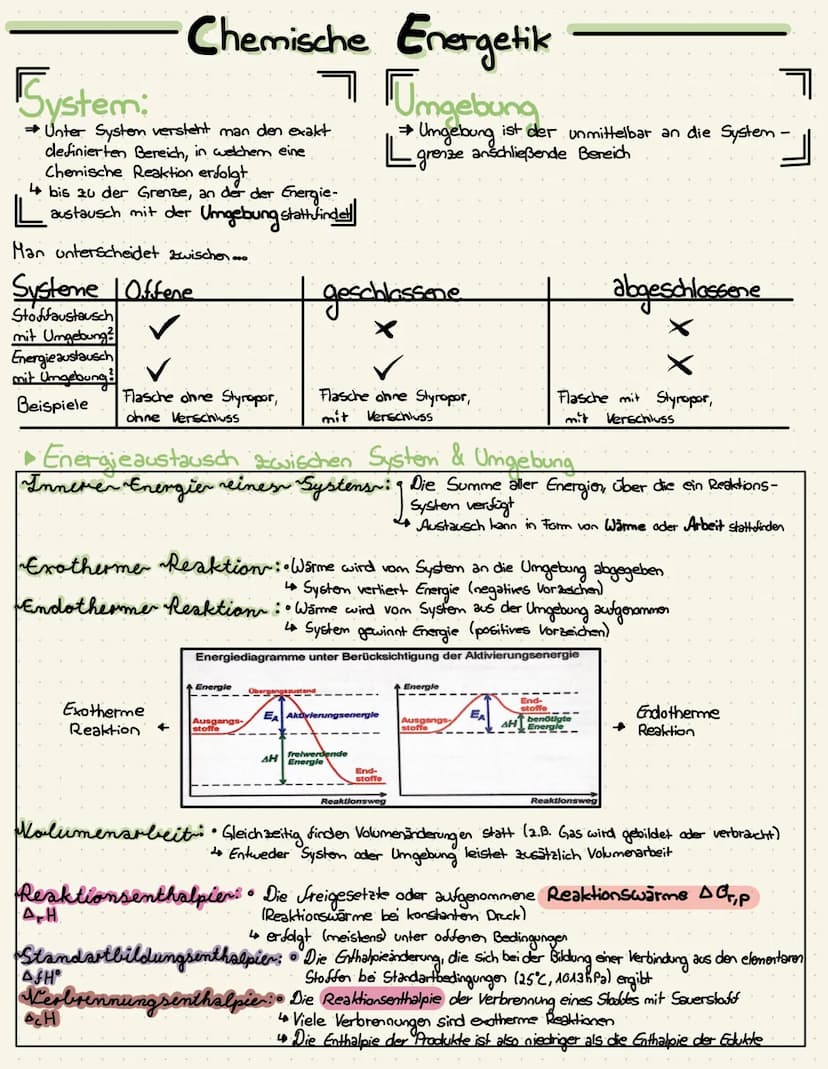 Chemische Energetik
System:
⇒ Unter System versteht man den exakt
definierten Bereich, in welchem eine
Chemische Reaktion erfolgt
↳ bis zu der Grenze, an der der Energie-
austausch mit der Umgebung stattfindet
Umgebung
⇒ Umgebung ist der unmittelbar an die System-
grenze anschließende Bereich
Man unterscheidet zwischen...
Systeme Offene geschlossene abgeschlossene
Stoffaustausch
mit Umgebung? ✓ × ×
Energieaustausch
mit Umgebung? ✓ ✓ ×
Beispiele
Flasche ohne Styropor,
ohne Verschluss
Flasche ohne Styropor,
mit Verschluss
Flasche mit Styropor,
mit Verschluss
▸ Energieaustausch zwischen System & Umgebung
Innere Energie eines Systems: • Die Summe aller Energien, über die ein Reaktions-
system verfügt
↳ Austausch kann in Form von Wärme oder Arbeit stattfinden
Exotherme Reaktion: • Wärme wird vom System an die Umgebung abgegeben
↳ System verliert Energie (negatives Vorzeichen)
Endotherme Reaktion: • Wärme wird vom System aus der Umgebung aufgenommen
↳ System gewinnt Energie (positives Vorzeichen)
Energiediagramme unter Berücksichtigung der Aktivierungsenergie
Exotherme
Reaktion ←
Energie
Übergangszustand
Ausgangs-
stoffe
EA Aktivierungsenergie
ΔH freiwerdende
Energie
End-
stoffe
Reaktionsweg
Energie
Ausgangs-
stoffe
EA
End-
stoffe
ΔH benötigte
Energie
Reaktionsweg
Endotherme
→ Reaktion
Volumenarbeit: • Gleichzeitig finden Volumenänderungen statt (z.B. Gas wird gebildet oder verbraucht)
↳ Entweder System oder Umgebung leistet zusätzlich Volumenarbeit
Reaktionsenthalpie: • Die freigesetzte oder aufgenommene Reaktionswärme ΔQr,p
ΔrH (Reaktionswärme bei konstanten Druck)
↳ erfolgt (meistens) unter offenen Bedingungen
Standartbildungsenthalpie: • Die Enthalpieänderung, die sich bei der Bildung einer Verbindung aus den elementaren
ΔfH° Stoffen bei Standartbedingungen (25°C, 1013hPa) ergibt
Verbrennungsenthalpie: • Die Reaktionsenthalpie der Verbrennung eines Stoffes mit Sauerstoff
ΔcH ↳ Viele Verbrennungen sind exotherme Reaktionen
↳ Die Enthalpie der Produkte ist also niedriger als die Enthalpie der Edukte